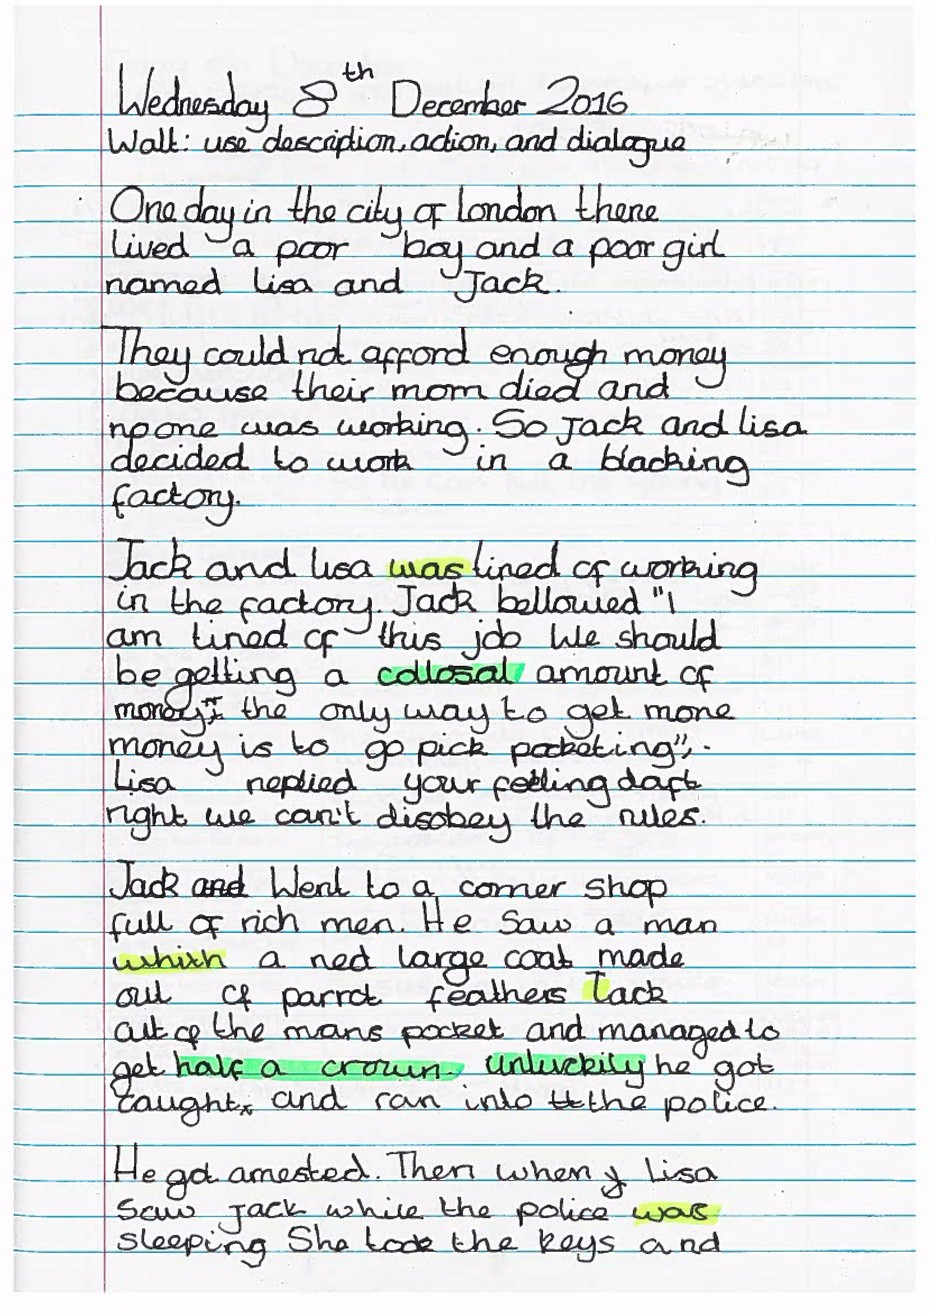 Wednesday 8th December 2016
Walt: use description, action, and dialogue
One day in the city of london there
lived a poor boy and a poor girl
named lisa and Jack.
They could not afford enough money
because their mom died and
no one was working. So Jack and lisa
decided to work in a blacking
factory.
Jack and lisa was tired of working
in the factory. Jack bellowed "I
am tired of this job We should
be getting a collosal amount of
money", the only way to get more
money is to go pick pocketing",.
Lisa replied your feeling daft
right we can't disobey the rules.
Jack and Went to a corner shop
full of rich men. He Saw a man
whith a red large coat made
out of parrot feathers Jack
cut of the mans pocket and managed to
get half a crown. Unluckily he got
caught, and ran into the police.
He got arrested. Then when Lisa
Saw Jack while the police was
sleeping She took the keys and